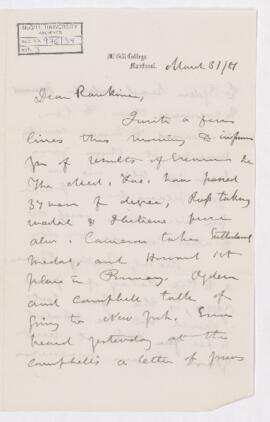 McGILL UNIVERSITY
ARCHIVES
ACC. NO. 976/34
REF. 3
McGill College,
Montreal.
March 31/81
Dear Rankine,
I write a few
lines this morning to inform
you of results of Exermin &c
The deed, has have passed
37 men for degree, Ross taking
medal & I believe prize
also. Cameron takes Sutherland
Medal, and Howard 1st
place in Primary. Ogden
and Campbell talk of
going to New York. Even
heard yesterday at the
Campbell's a letter of yours